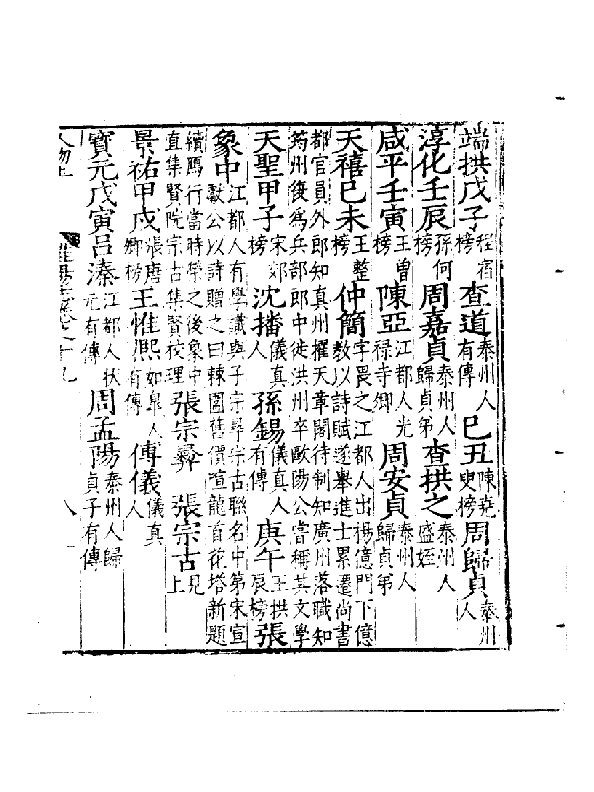 端拱戊子程宿榜查道泰州人有傳已丑陳堯叟榜周歸貞泰州人
淳化壬辰孫何榜周嘉貞泰州人歸貞弟查拱之泰州人盛姪
咸平壬寅王曾榜陳亞江都人光祿寺卿周安貞泰州人歸貞弟
天禧已未王整榜仲簡字畏之江都人出楊億門下億教以詩賦遂舉進士累遷尚書
都官員外郎知真州擢天章閣待制知廣州落職知筠州後爲兵部郎中徙洪州卒歐陽公嘗稱其文學
天聖甲子宋郊榜沈播儀真人孫錫儀真人有傳庚午王拱辰榜張
象中江都人有學識與子宗彞宗古聯名中第宋宣獻公以詩贈之曰棘圍舊價喧龍首花塔新題
續鴈行當時榮之後象中直集賢院宗古集賢校理張宗彞 張宗古見上
景祐甲戌張唐卿榜王惟熙如皋人有傳傅儀儀真人
寶元戊寅呂溱江都人狀元有傳周孟陽泰州人歸貞子有傳
人物上 卷之十九 八